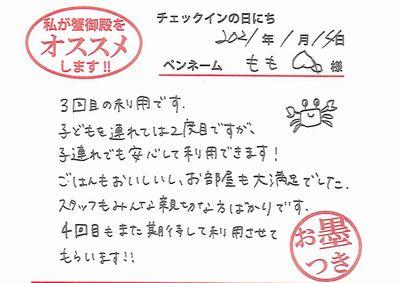 私が蟹御殿を
オススメ
します!!
チェックインの日にち
2021年1月14日
ペンネーム もも 様
3回目の利用です.
子どもを連れては2度目ですが、
子連れでも安心して利用できます!
ごはんもおいしいし、お部屋も大満足でした.
スタッフもみんな親切な方ばかりです.
4回目もまた期待して利用させて
もらいます!!
お墨
つき